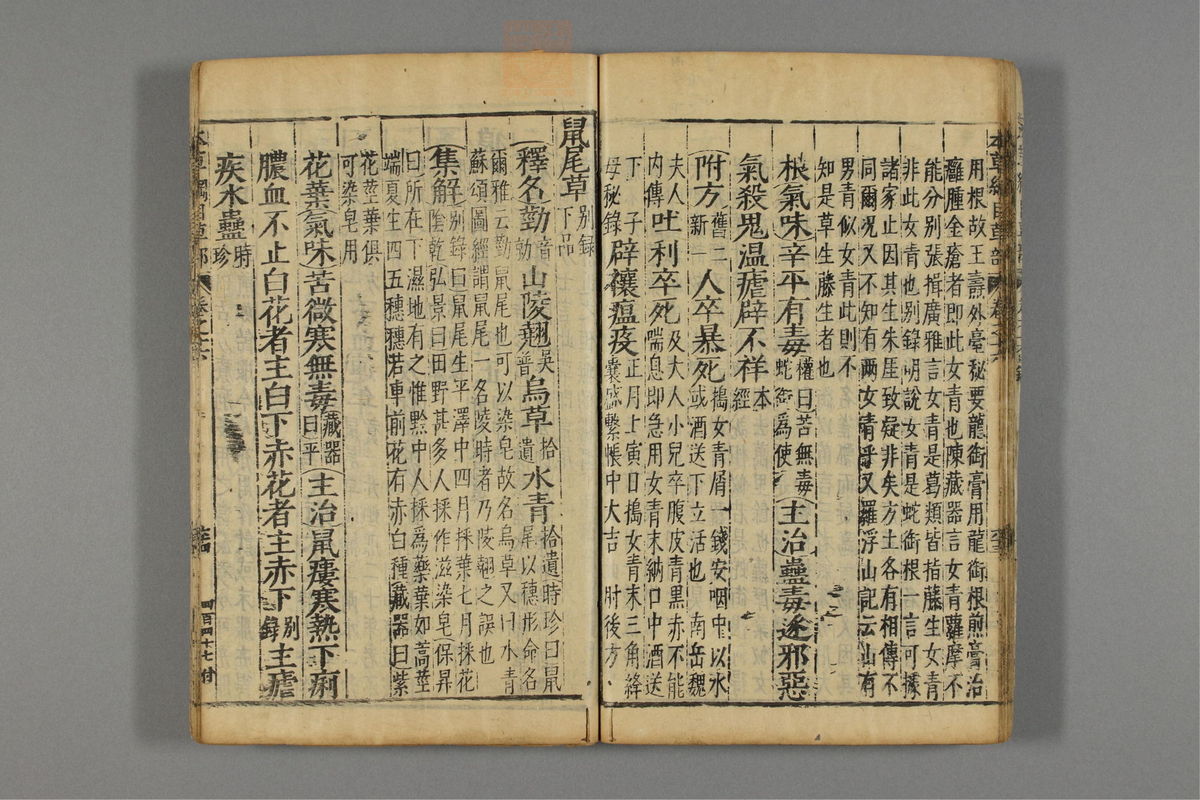 本草綱目草部 卷之十六
用根故王壽外臺秘要龍銜膏用龍銜根煎膏治
癰腫金瘡者即此女青也陳藏器言女青蘿摩不
能分别張揖廣雅言女青是葛類皆指藤生女青
非此女青也别録明説女青是蛇銜根一言可據
諸家止因其生朱崖致疑非矣方土各有相傳不
同爾况又不知有兩女青乎又羅浮山記云山有
男青似女青此則不
知是草生藤生者也
根氣味辛平有毒權曰苦無毒蛇銜爲使主治蠱毒逐邪惡
氣殺鬼温瘧辟不祥本經
附方舊二新一人卒暴死搗女青屑一錢安咽中以水或酒送下立活也南岳魏
夫人内傳吐利卒死及大人小兒卒腹皮青黑赤不能喘息即急用女青末納口中酒送
下子母秘録辟禳瘟疫正月上寅日搗女青末三角絳囊盛繫帳中大吉肘後方
鼠尾草别録下品
釋名葝音勍山陵翹吳普烏草拾遺水青拾遺時珍曰鼠尾以穗形命名
爾雅云葝鼠尾也可以染皂故名烏草又曰水青
蘇頌圖經謂鼠尾一名陵時者乃陵翹之誤也
集解别録曰鼠尾生平澤中四月採葉七月採花陰乾弘景曰田野甚多人採作滋染皂保昇
曰所在下濕地有之惟黔中人採爲藥葉如蒿莖
端夏生四五穗穗若車前花有赤白種藏器曰紫
花莖葉俱
可染皂用
花葉氣味苦微寒無毒藏器曰平主治鼠瘻寒熱下痢
膿血不止白花者主白下赤花者主赤下别録主瘧
疾水蠱時珍
本草綱目草部 卷之十六
四百四十七 付